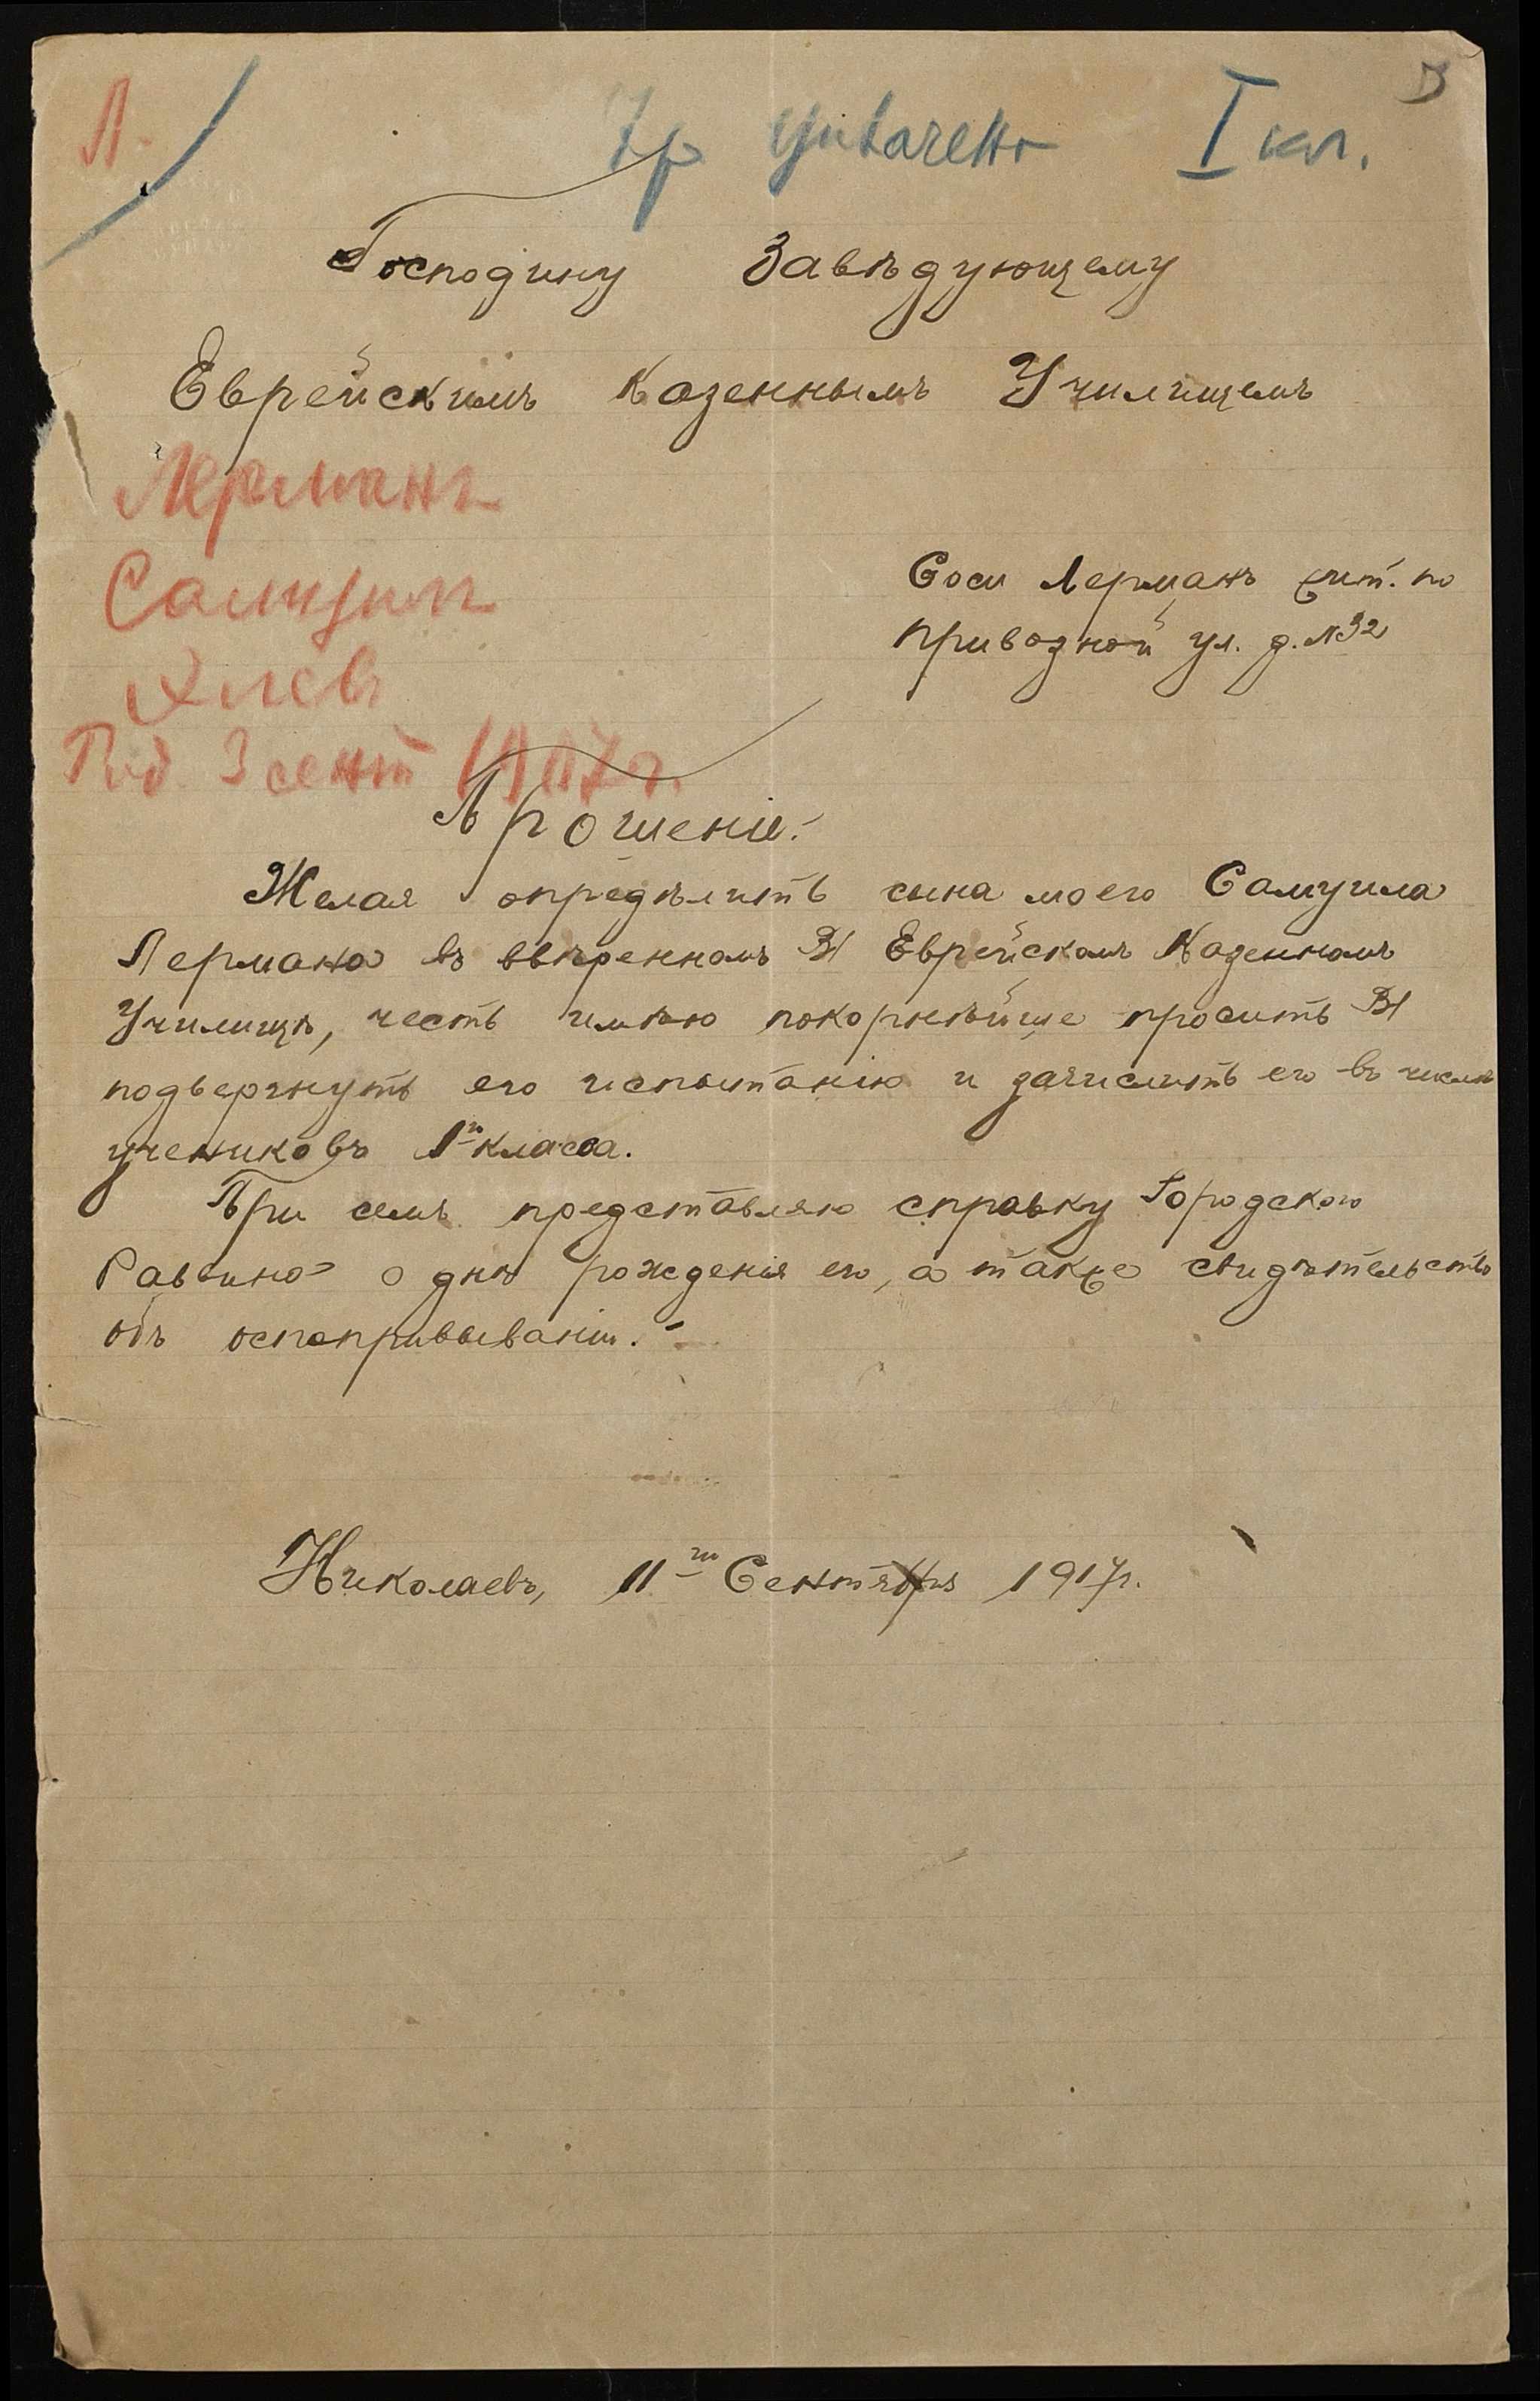 Л.
I кл.
Господину Завѣдующему
Еврейскимъ Казеннымъ Училищемъ
Лерманъ
Самуил
Соси Лерманъ жит. по
Приводной ул. д. № 32
Род. 3 сент 1907 г.
Прошеніе.
Желая опредѣлить сына моего Самуила
Лермана въ ввѣренномъ Вамъ Еврейскомъ Казенномъ
Училищѣ, честь имѣю покорнѣйше просить Васъ
подвергнуть его испытанію и зачислить его въ число
учениковъ 1го класса.
При семъ представляю справку Городского
Раввина о днѣ рожденія его, а также свидѣтельство
объ оспопрививаніи.
Николаевъ, 11го Сентября 1917 г.